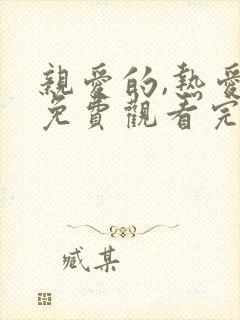 親愛的,熱愛
免費觀看完
臧某